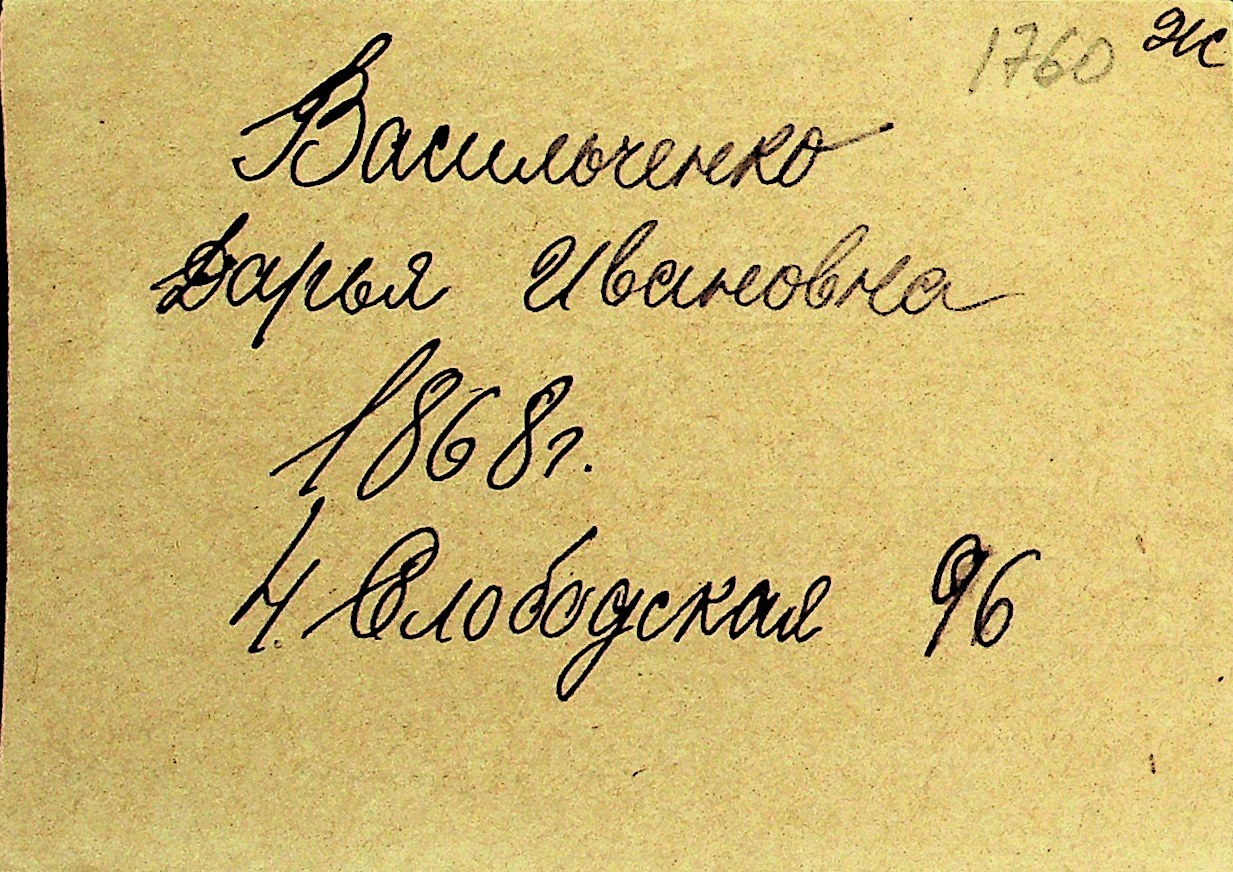 1760 Ж
Васильченко
Дарья Ивановна
1868г.
Н. Слободская 96